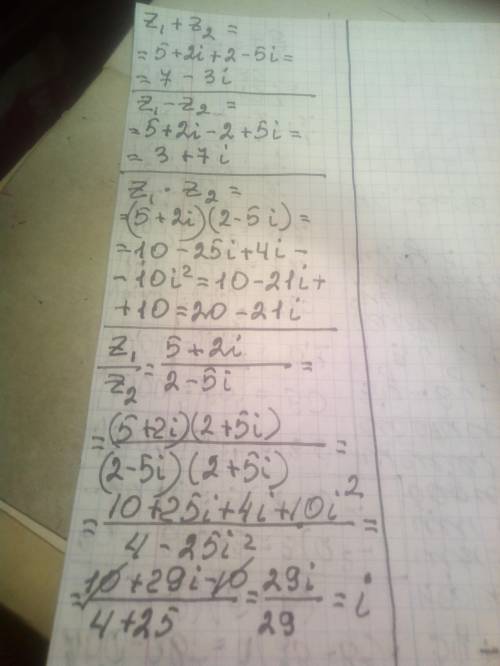 z₁ + z₂ =
= 5+2i+2-5i=
= 7 - 3i
z₁ - z₂ =
= 5+2i-2+5i=
= 3+7i
z₁ · z₂ =
=(5+2i)(2-5i)=
=10-25i+4i-
-10i²=10-21i+
+10=20-21i
z₁/z₂ = (5+2i)/(2-5i) =
= (5+2i)(2+5i)/(2-5i)(2+5i) =
= (10+25i+4i+10i²)/(4-25i²) =
= (10+29i-10)/(4+25) = 29i/29 = i